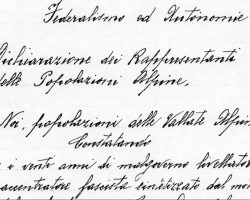 Federalismo ed Autonomie
Dichiarazione dei Rappresentanti
delle Popolazioni Alpine.
Noi, popolazioni delle Vallate Alpine
Constatando
i venti anni di malgoverno livellatore
accentratore fascista